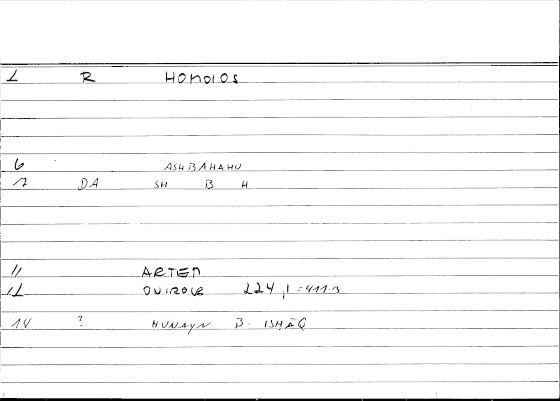 1 R HOMOIOS
6 ASHBAHAHU
7 DA SH B H
11 ARTEM
12 OVIROLE 224,1 = 411.3
14 ? HUNAYN B. ISHĀQ